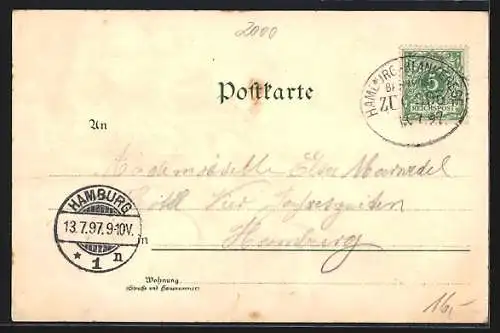 2000
Postkarte
HAMBURG-BLANKENESE
5
REICHSPOST
ZUG
13.7.97.
An
Mademoiselle Elsa
Hôtel Vier Jahreszeiten
in Hamburg
HAMBURG
13.7.97. 9-10V.
* 1 n
Wohnung
(Straße und Hausnummer)
16,-